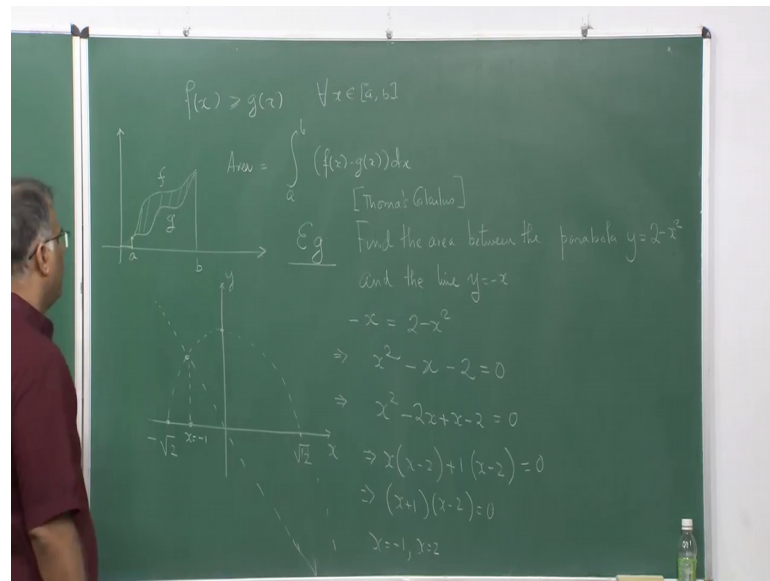 f(x) ⩾ g(x) ∀ x ∈ [a, b]
f
g
a
b
Area = ∫ₐᵇ (f(x)-g(x))dx
[Thoma's Calculus]
Eg Find the area between the parabola y=2-x²
and the line y=-x
-x = 2-x²
⇒ x² - x - 2 = 0
⇒ x² - 2x + x - 2 = 0
⇒ x(x-2) + 1(x-2) = 0
⇒ (x+1)(x-2) = 0
x=-1, x=2
y
-√2
x=-1
√2
x